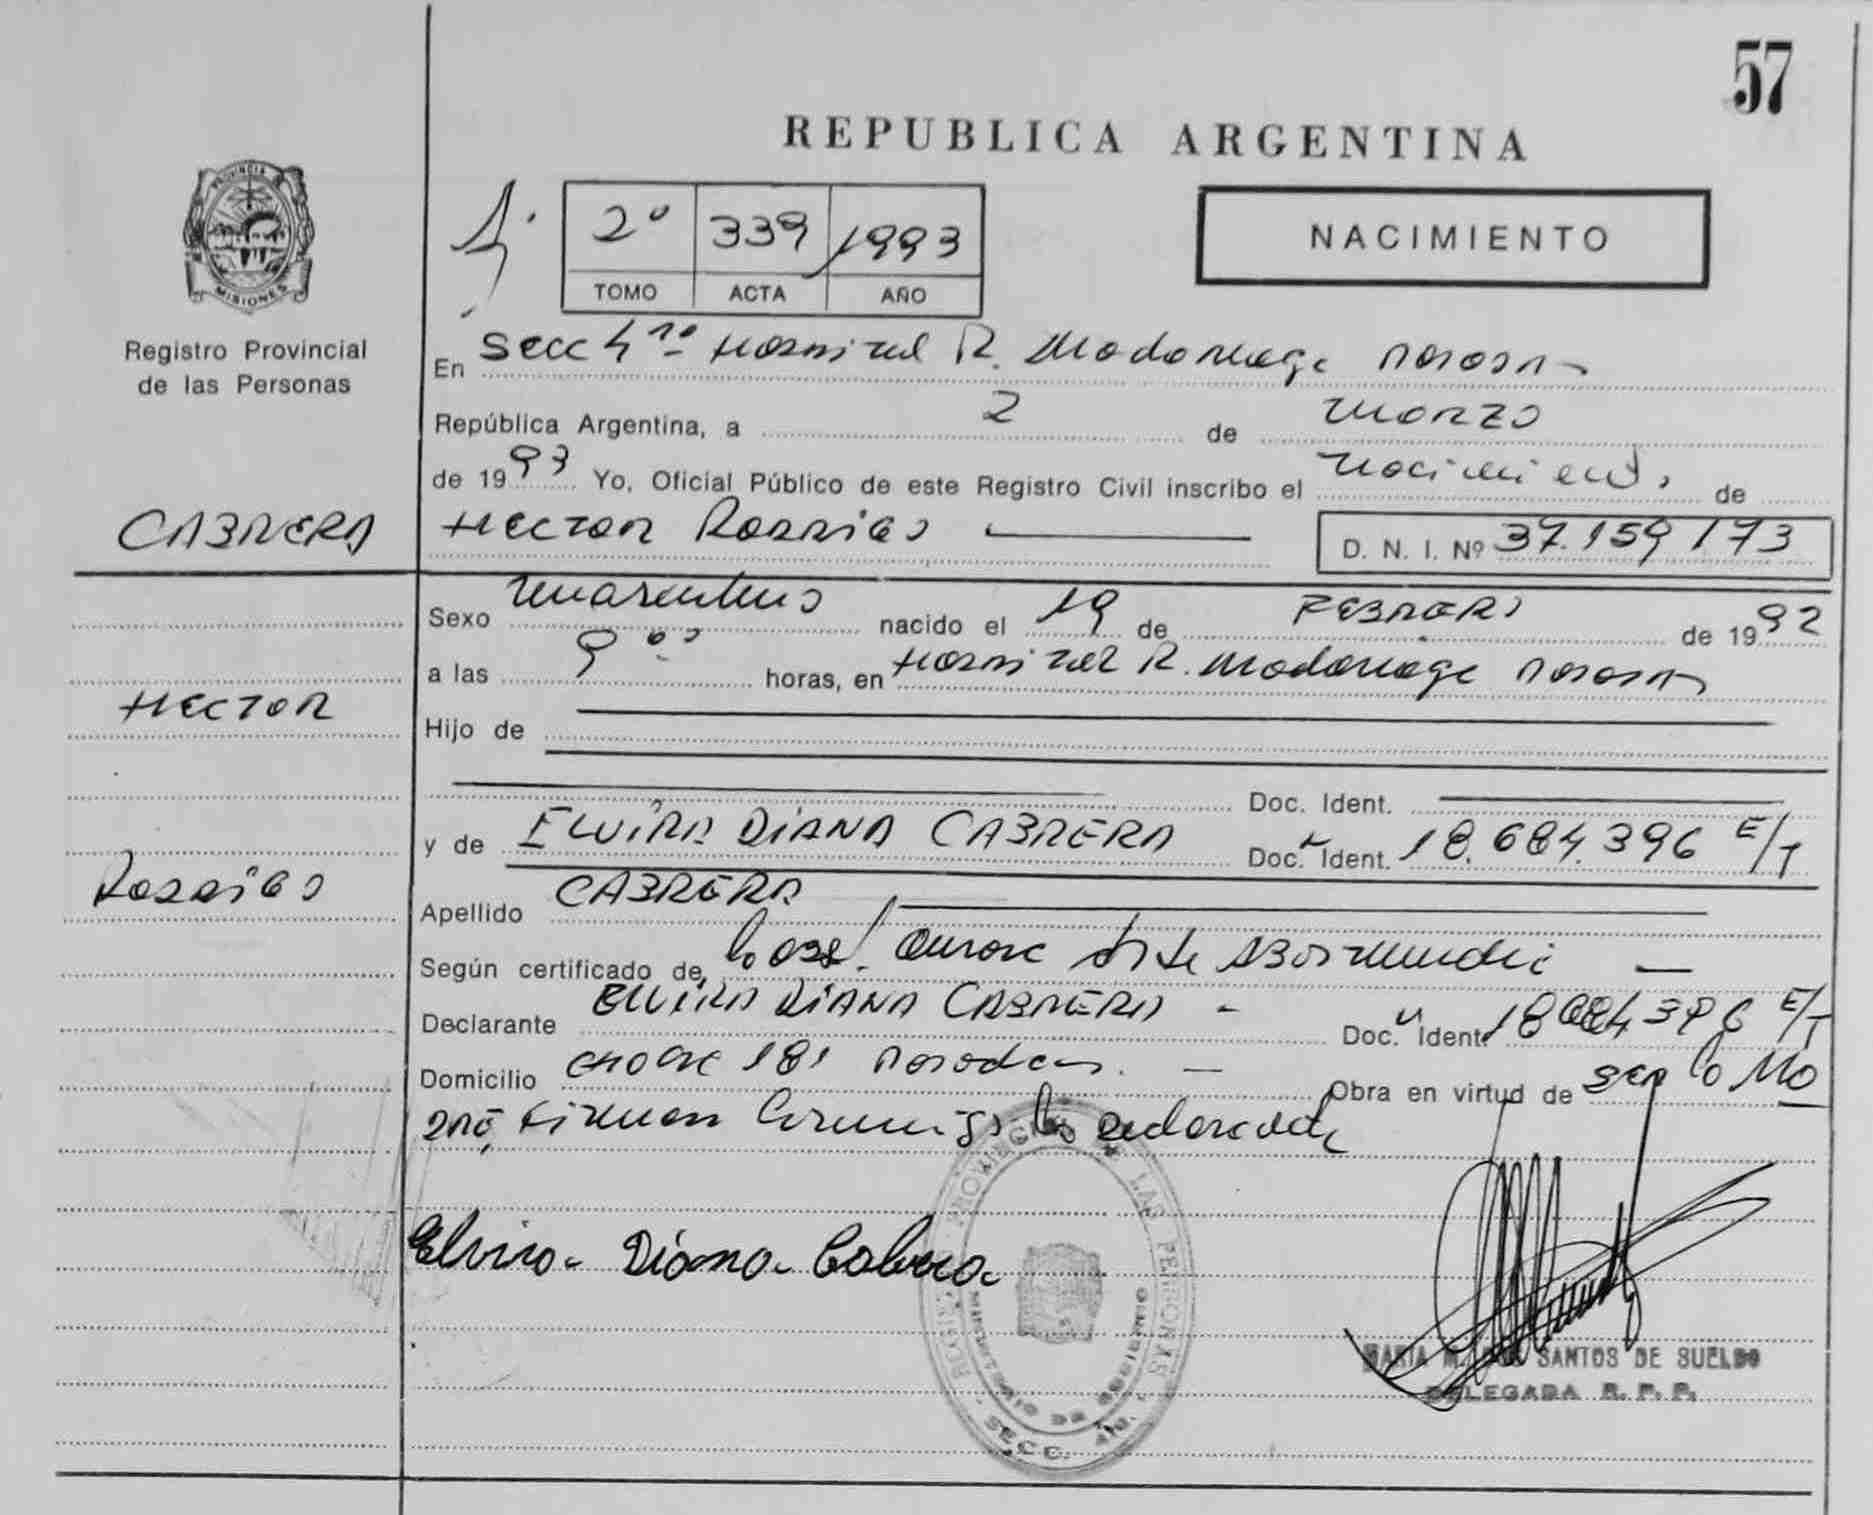 57
REPUBLICA ARGENTINA
PROVINCIA DE
MISIONES
Registro Provincial
de las Personas
2º 339 1993
TOMO ACTA AÑO
NACIMIENTO
En Secc 4ta Hospital R. Madariaga Posadas
República Argentina, a 2 de Marzo
de 1993 Yo, Oficial Público de este Registro Civil inscribo el Nacimiento de
CABRERA HECTOR RODRIGO
D. N. I. Nº 37.159 173
Sexo Masculino nacido el 19 de FEBRERO de 1992
a las 9 horas, en Hospital R. Madariaga Posadas
HECTOR
Hijo de
Doc. Ident.
y de ELVIRA DIANA CABRERA Doc. Ident. 18.684.396 E/T
RODRIGO
Apellido CABRERA
Según certificado de
Declarante ELVIRA DIANA CABRERA - Doc. Ident. 18684396 E/T
Domicilio 181 Posadas. Obra en virtud de ser la Ma
dre, Firman Conmigo la declarante
Elvira Diana Cabrera
REGISTRO PROVINCIAL DE LAS PERSONAS
MINISTERIO DE GOBIERNO
SECC. 4ta.
MARIA SANTOS DE SUELDO
DELEGADA R. P. P.